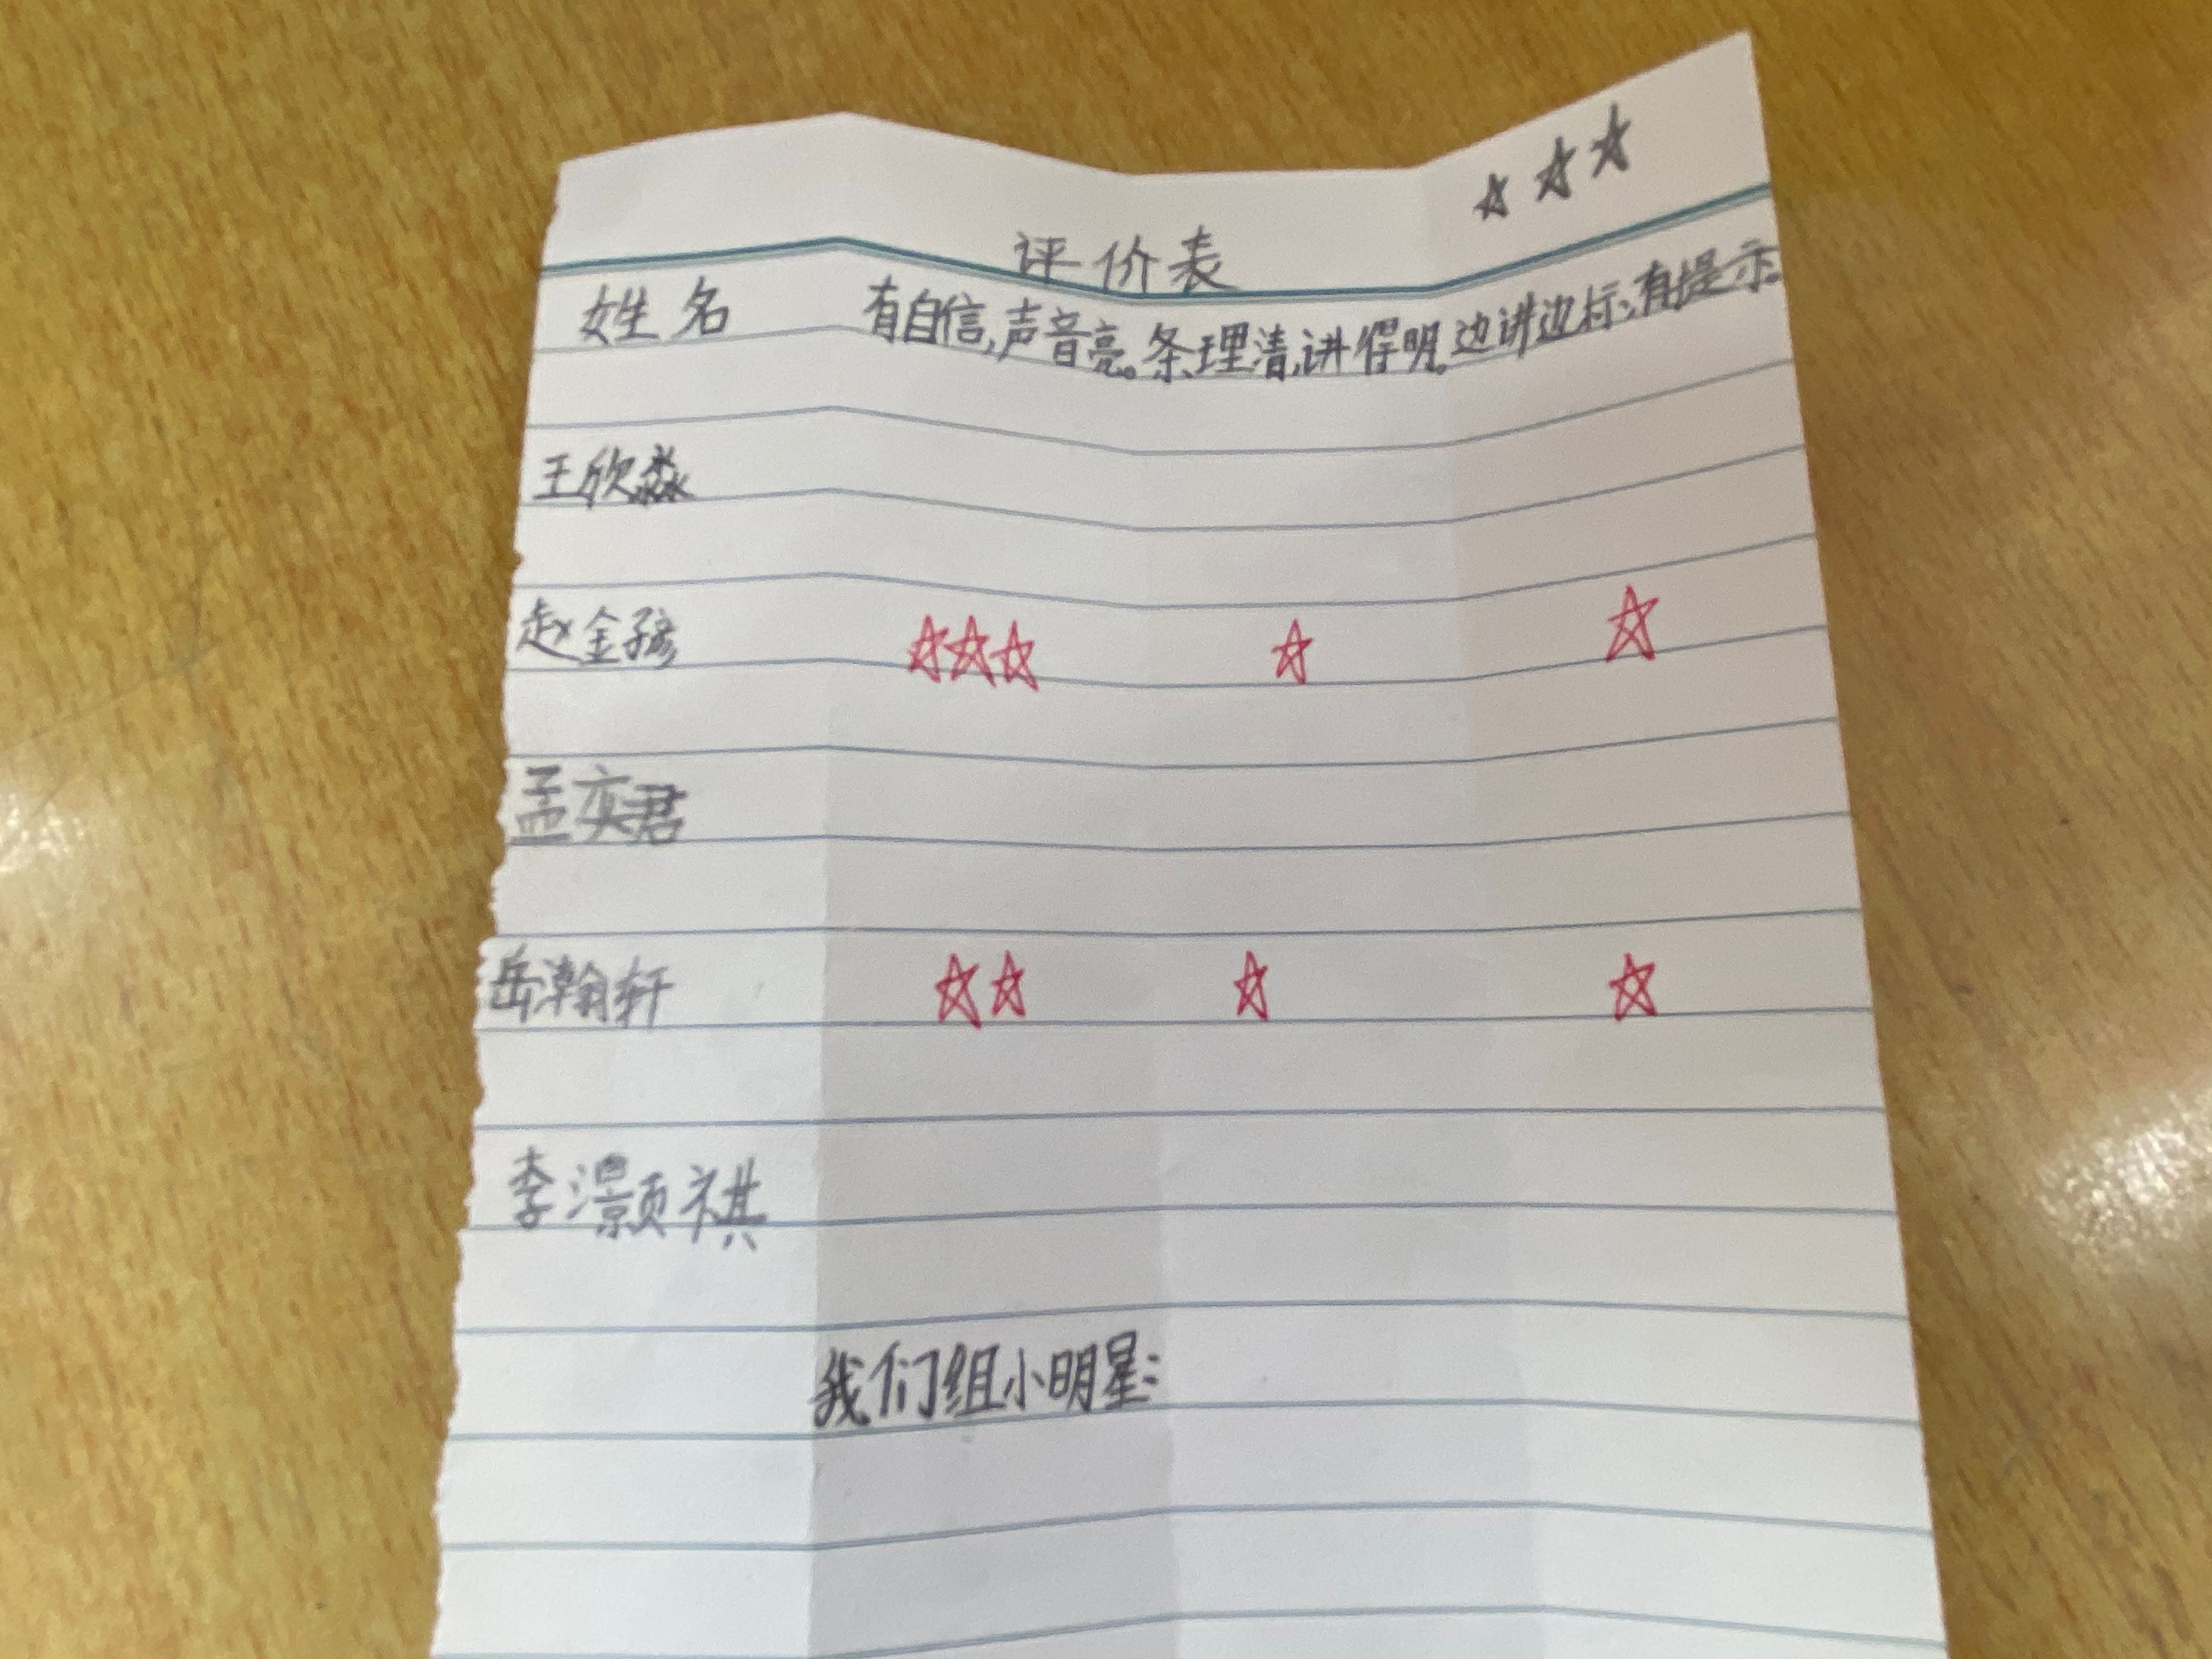 评价表
姓名 有自信,声音亮。条理清,讲得明。边讲边标,有提示。
王欣淼
赵金
孟奕君
岳瀚轩
李灏祺
我们组小明星: